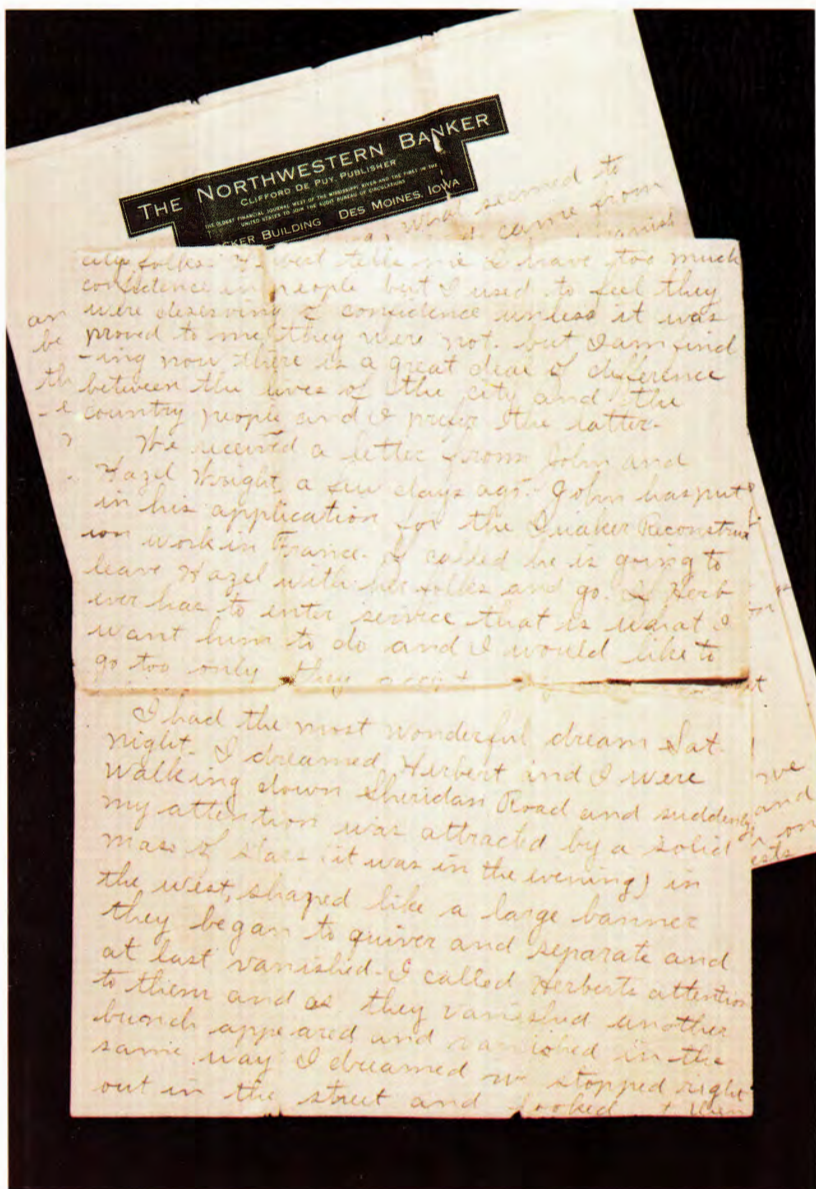 THE NORTHWESTERN BANKER
CLIFFORD DE PUY, PUBLISHER
THE OLDEST FINANCIAL JOURNAL WEST OF THE MISSISSIPPI RIVER AND THE FIRST IN THE
UNITED STATES TO JOIN THE AUDIT BUREAU OF CIRCULATIONS
BUILDING DES MOINES, IOWA
what seemed to
came from
city folks. tells me I have too much
confidence in people but I used to feel they
were deserving of confidence unless it was
proved to me they were not. but I am find
-ing now there is a great deal of difference
between the lives of the city and the
country people and I prefer the latter.
We received a letter from John and
Hazel Wright a few days ago. John has put
in his application for the Quaker Reconstruc
ion work in France. If called he is going to
leave Hazel with her folks and go. If Herb
ever has to enter service that is what I
want him to do and I would like to
go too only they
I had the most wonderful dream Sat.
night. I dreamed Herbert and I were
walking down Sheridan Road and suddenly
my attention was attracted by a solid
mass of stars (it was in the evening) in
the west, shaped like a large banner
they began to quiver and separate and
at last vanished. I called Herberts attention
to them and as they vanished another
bunch appeared and vanished in the
same way I dreamed we stopped right
out in the street and looked